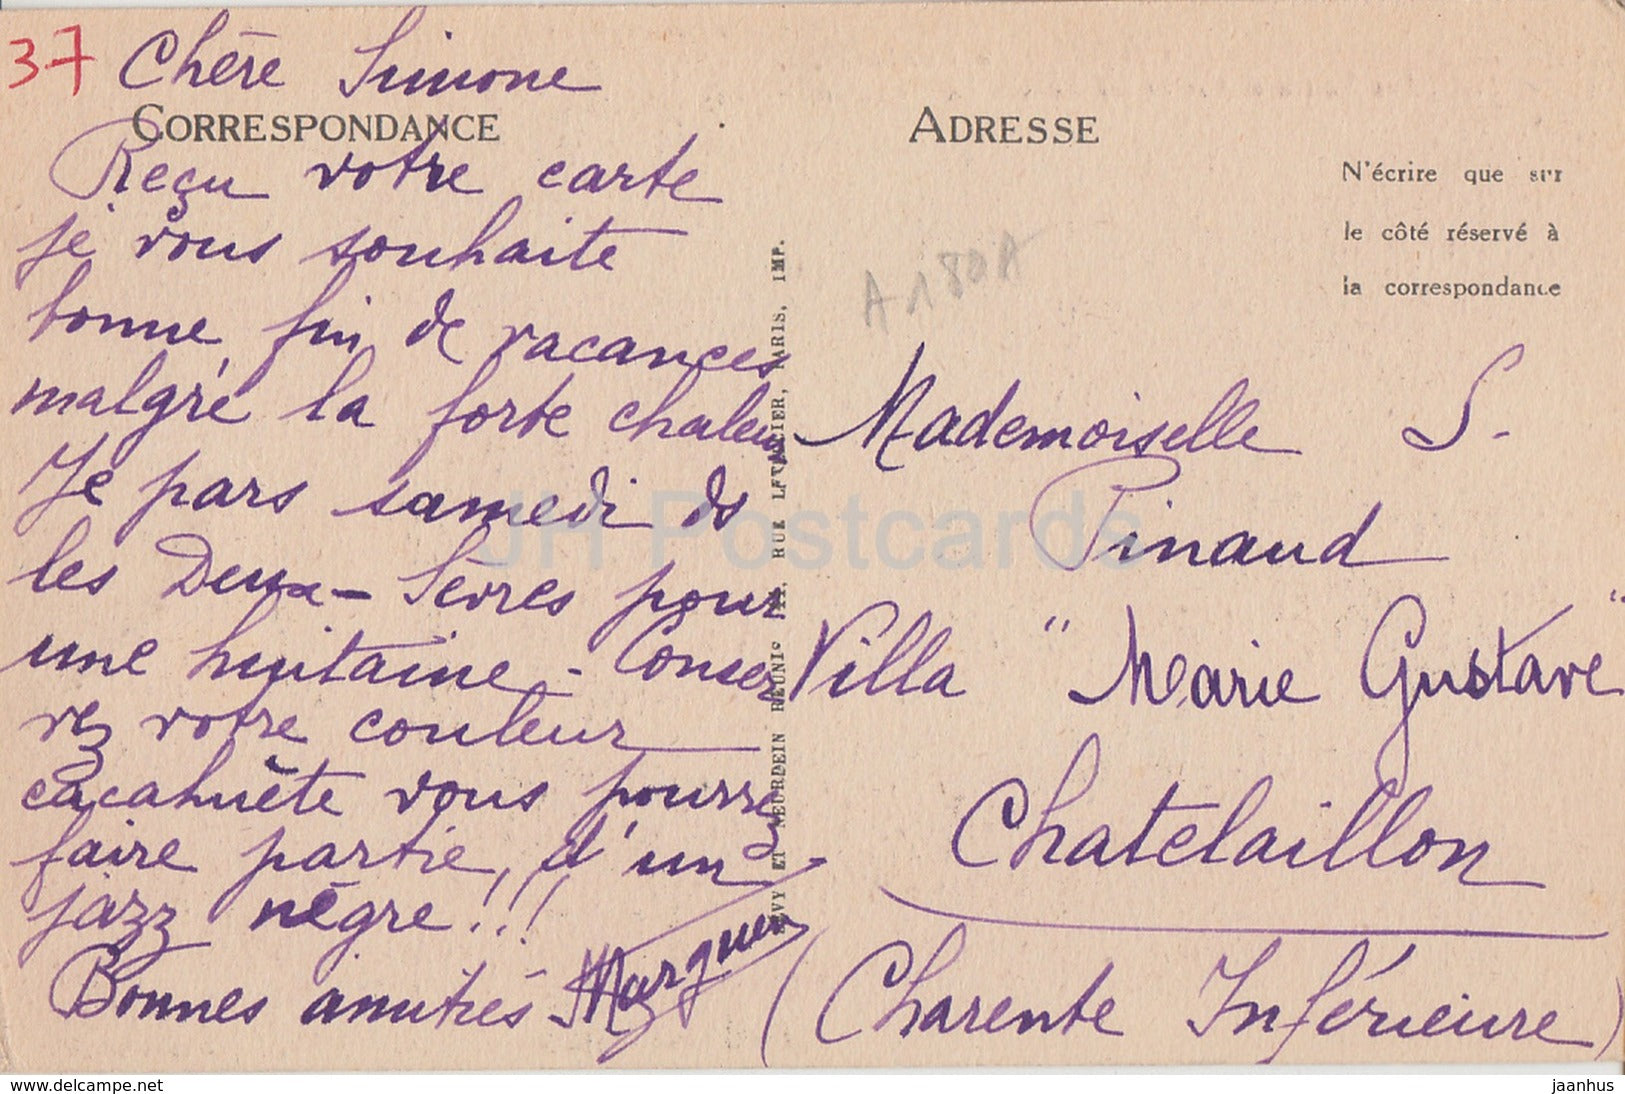 37 Chère Simone
CORRESPONDANCE
Reçu votre carte
je vous souhaite
bonne fin de vacances
malgré la forte chaleur
Je pars samedi ds
les Deux-Sèvres pour
une huitaine - Conser
vez votre couleur
cacahuète vous pourrez
faire partie, d'un
jazz nègre!!!
Bonnes amitiés
LEVY ET NEURDEIN REUNIS, RUE LETELLIER, PARIS, IMP.
ADRESSE
N'écrire que sur
le côté réservé à
la correspondance
A180A
Mademoiselle S.
Pinaud
Villa "Marie Gustave"
Chatelaillon
(Charente Inférieure)
JH Postcards
eestikaart.ee
jaanhus